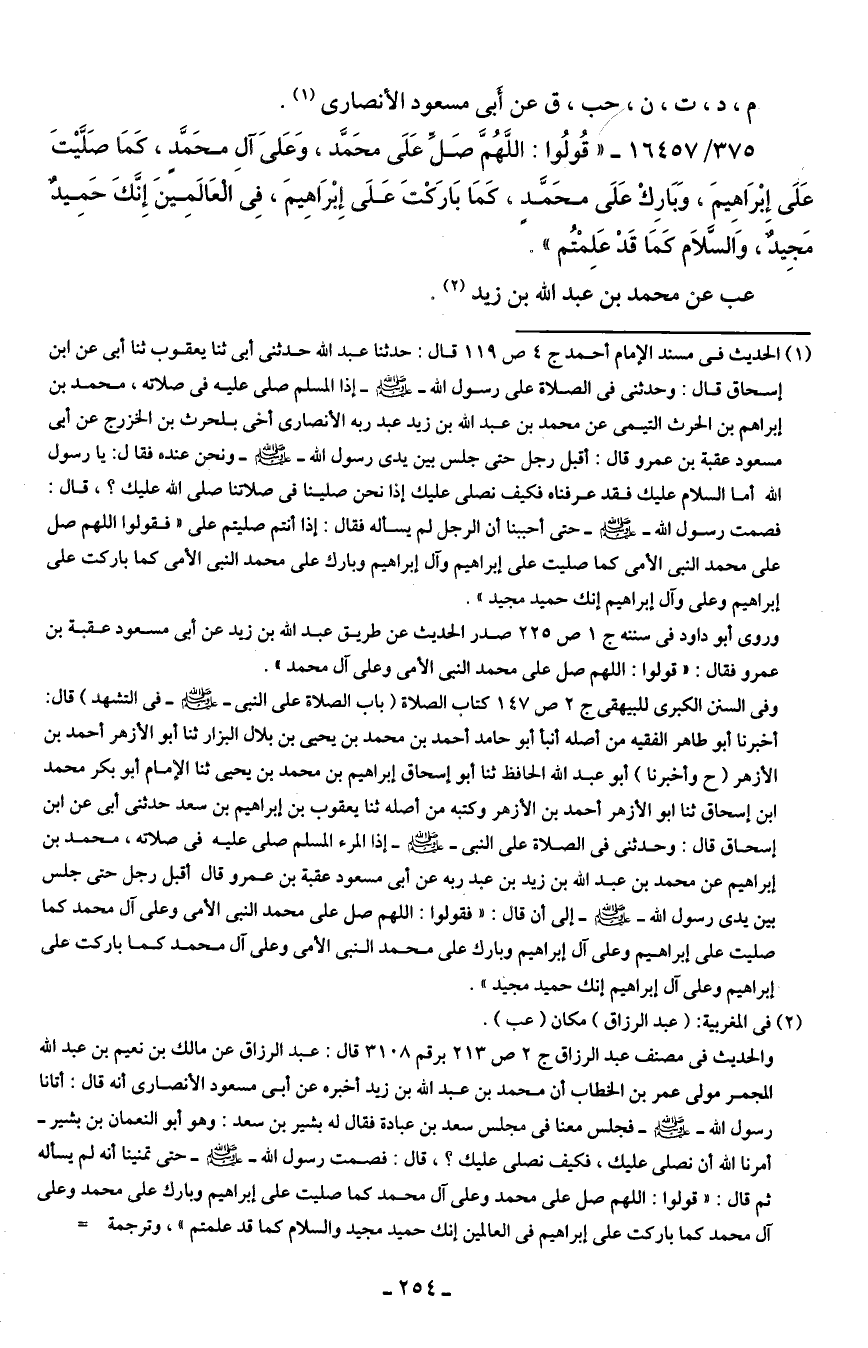 م ، د ، ت ، ن ، حب ، ق عن أَبى مسعود الأنصارى (١) .
٣٧٥/ ١٦٤٥٧ ـ « قُولُوا : اللَّهُمَّ صَلِّ عَلَى محمَّد ، وَعَلَى آلِ محمَّدٍ ، كَمَا صَلَّيْتَ
عَلَى إِبْرَاهِيمَ ، وَبَارِكْ عَلَى محمَّدٍ ، كَمَا بَارَكْتَ عَلَى إِبْرَاهِيمَ ، فِى الْعَالَمِينَ إِنَّكَ حَمِيدٌ
مَجِيدٌ ، وَالسَّلاَم كَمَا قَدْ عَلِمْتُم » .
عب عن محمد بن عبد الله بن زيد (٢) .
(١) الحديث فى مسند الإمام أحمد ج ٤ ص ١١٩ قال : حدثنا عبد الله حدثنى أبى ثنا يعقوب ثنا أبى عن ابن
إسحاق قال : وحدثنى فى الصلاة على رسول الله ـ ﷺ ـ إذا المسلم صلى عليه فى صلاته ، محمد بن
إبراهم بن الحرث التيمى عن محمد بن عبد الله بن زيد عبد ربه الأنصارى أخى بلحرث بن الخزرج عن أبى
مسعود عقبة بن عمرو قال : أقبل رجل حتى جلس بين يدى رسول الله ـ ﷺ ـ ونحن عنده فقا ل: يا رسول
الله أما السلام عليك فقد عرفناه فكيف نصلى عليك إذا نحن صلينا فى صلاتنا صلى الله عليك ؟ ، قال :
فصمت رسول الله ـ ﷺ ـ حتى أحببنا أن الرجل لم يسأله فقال : إذا أنتم صليتم على « فقولوا اللهم صل
على محمد النبى الأمى كما صليت على إبراهيم وآل إبراهيم وبارك على محمد النبى الأمى كما باركت على
إبراهيم وعلى وآل إبراهيم إنك حميد مجيد » .
وروى أبو داود فى سننه ج ١ ص ٢٢٥ صدر الحديث عن طريق عبد الله بن زيد عن أبى مسعود عقبة بن
عمرو فقال : « قولوا : اللهم صل على محمد النبى الأمى وعلى آل محمد » .
وفى السنن الكبرى للبيهقى ج ٢ ص ١٤٧ كتاب الصلاة ( باب الصلاة على النبى ـ ﷺ ـ فى التشهد ) قال:
أخبرنا أبو طاهر الفقيه من أصله أنبأ أبو حامد أحمد بن محمد بن يحيى بن بلال البزار ثنا أبو الأزهر أحمد بن
الأزهر ( ح وأخبرنا ) أبو عبد الله الحافظ ثنا أبو إسحاق إبراهيم بن محمد بن يحيى ثنا الإمام أبو بكر محمد
ابن إسحاق ثنا ابو الأزهر أحمد بن الأزهر وكتبه من أصله ثنا يعقوب بن إبراهيم بن سعد حدثنى أبى عن ابن
إسحاق قال : وحدثنى فى الصلاة على النبى ـ ﷺ ـ إذا المرء المسلم صلى عليه فى صلاته ، محمد بن
إبراهيم عن محمد بن عبد الله بن زيد بن عبد ربه عن أبى مسعود عقبة بن عمرو قال أقبل رجل حتى جلس
بين يدى رسول الله ـ ﷺ ـ إلى أن قال : « فقولوا : اللهم صل على محمد النبى الأمى وعلى آل محمد كما
صليت على إبراهيم وعلى آل إبراهيم وبارك على محمد النبى الأمى وعلى آل محمد كما باركت على
إبراهيم وعلى آل إبراهيم إنك حميد مجيد » .
(٢) فى المغربية: ( عبد الرزاق ) مكان ( عب ) .
والحديث فى مصنف عبد الرزاق ج ٢ ص ٢١٣ برقم ٣١٠٨ قال : عبد الرزاق عن مالك بن نعيم بن عبد الله
المجمر مولى عمر بن الخطاب أن محمد بن عبد الله بن زيد أخبره عن أبى مسعود الأنصارى أنه قال : أتانا
رسول الله ـ ﷺ ـ فجلس معنا فى مجلس سعد بن عبادة فقال له بشير بن سعد : وهو أبو النعمان بن بشير ـ
أمرنا الله أن نصلى عليك ، فكيف نصلى عليك ؟ ، قال : فصمت رسول الله ـ ﷺ ـ حتى تمنينا أنه لم يسأله
ثم قال : « قولوا : اللهم صل على محمد وعلى آل محمد كما صليت على إبراهيم وبارك على محمد وعلى
آل محمد كما باركت على إبراهيم فى العالمين إنك حميد مجيد والسلام كما قد علمتم » ، وترجمة =
ـ ٢٥٤ ـ